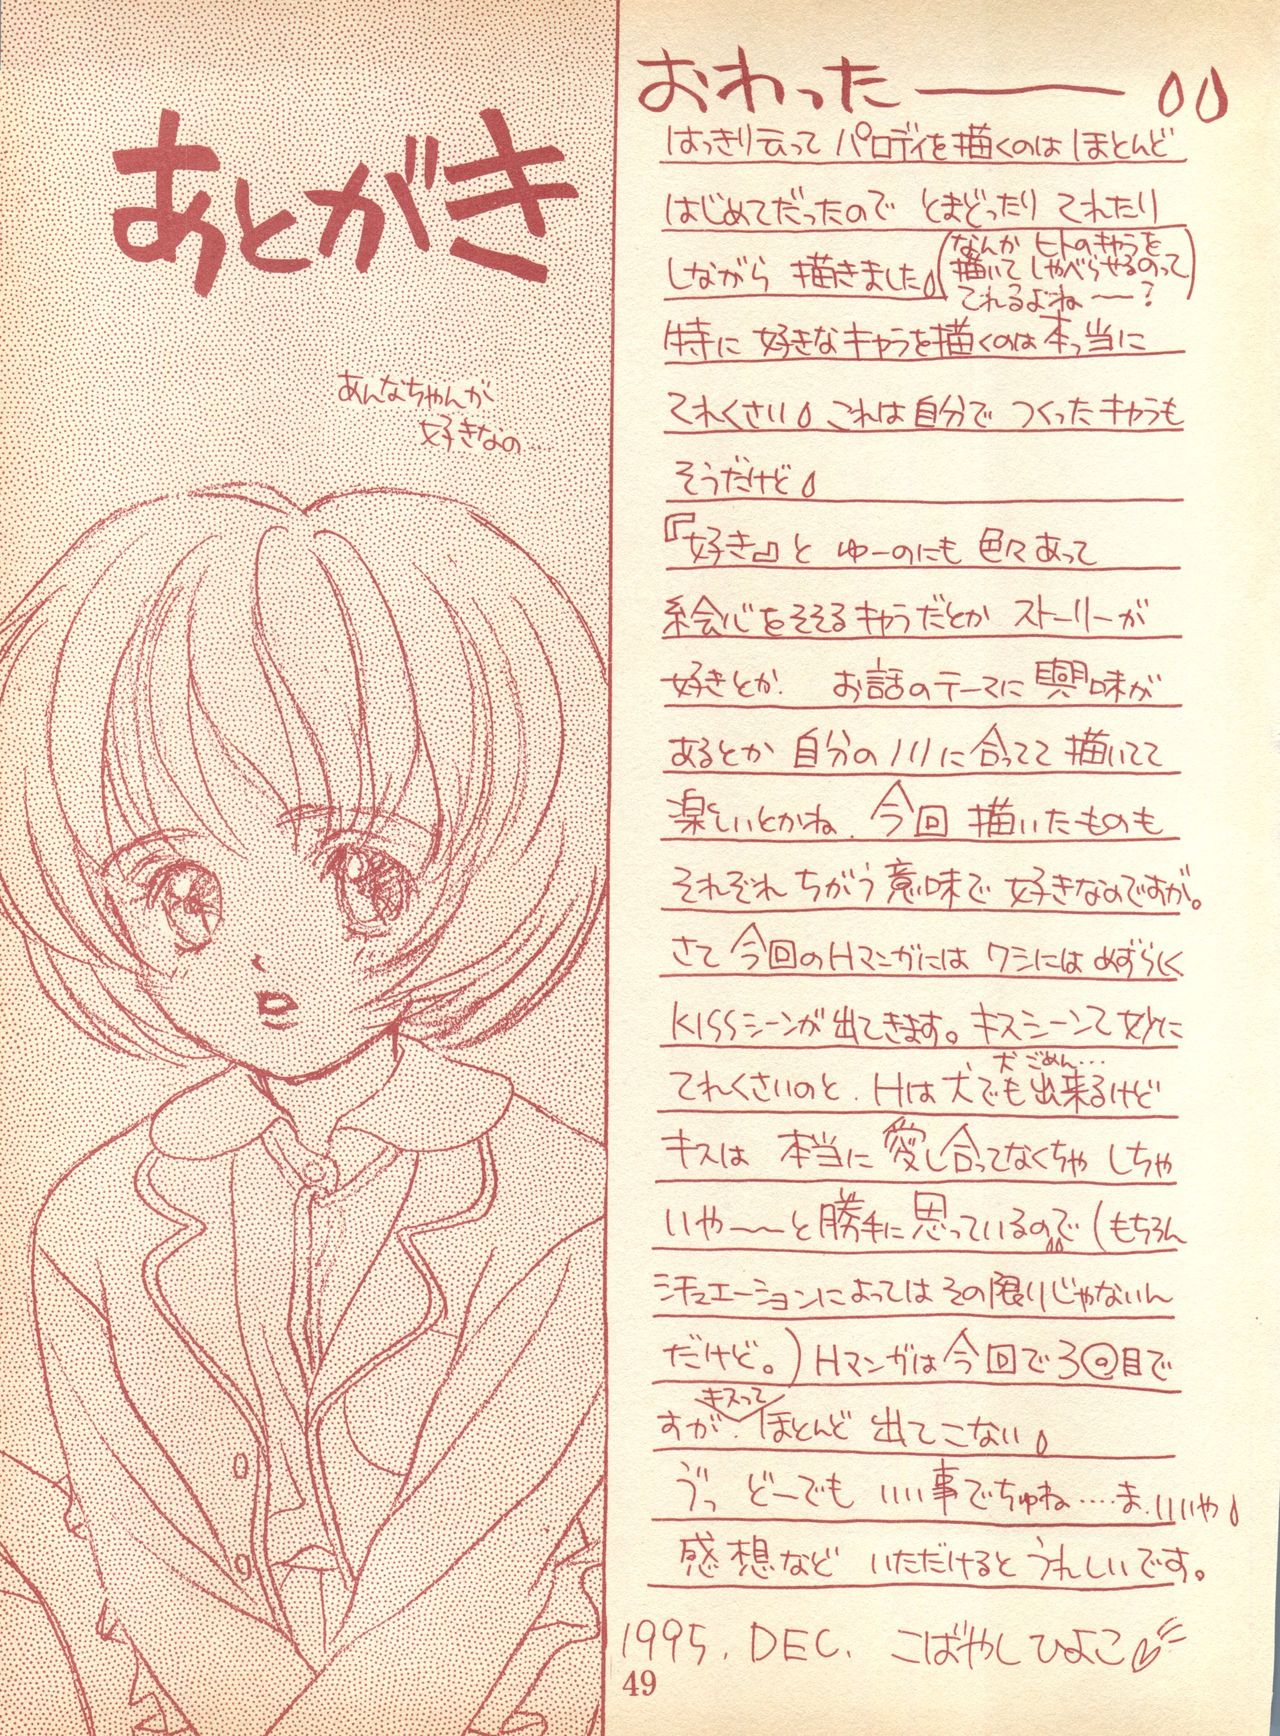 あとがき
あんなちゃんが
好きなの…
おわったー
はっきり云って パロディを描くのは ほとんど
はじめてだったので とまどったり てれたり
しながら 描きました
(なんか ヒトのキャラを
描いて しゃべらせるのって
てれるよねー?)
特に 好きなキャラを描くのは本っ当に
てれくさい これは自分で つくったキャラも
そうだけど
『好き』と ゆーのにも 色々あって
絵心をそそるキャラだとか ストーリーが
好きとか. お話のテーマに興味が
あるとか 自分のノリに合ってて 描いてて
楽しいとかね. 今回 描いたものも
それぞれ ちがう意味で 好きなのですが。
さて 今回のHマンガには ワシには めずらしく
KISSシーンが出てきます。キスシーンて妙に
てれくさいのと. Hは犬でも出来るけど
犬 ごめん…
キスは 本当に愛し合ってなくちゃ しちゃ
いやーーと勝手に思っているので (もちろん
シチュエーションによってはその限りじゃないん
だけど。) Hマンガは今回で3回目で
すが. キスって ほとんど 出てこない
ゔっ どーでも いい事でちゅね…. ま. いいや
感想など いただけると うれしいです。
1995. DEC. こばやしひよこ
49